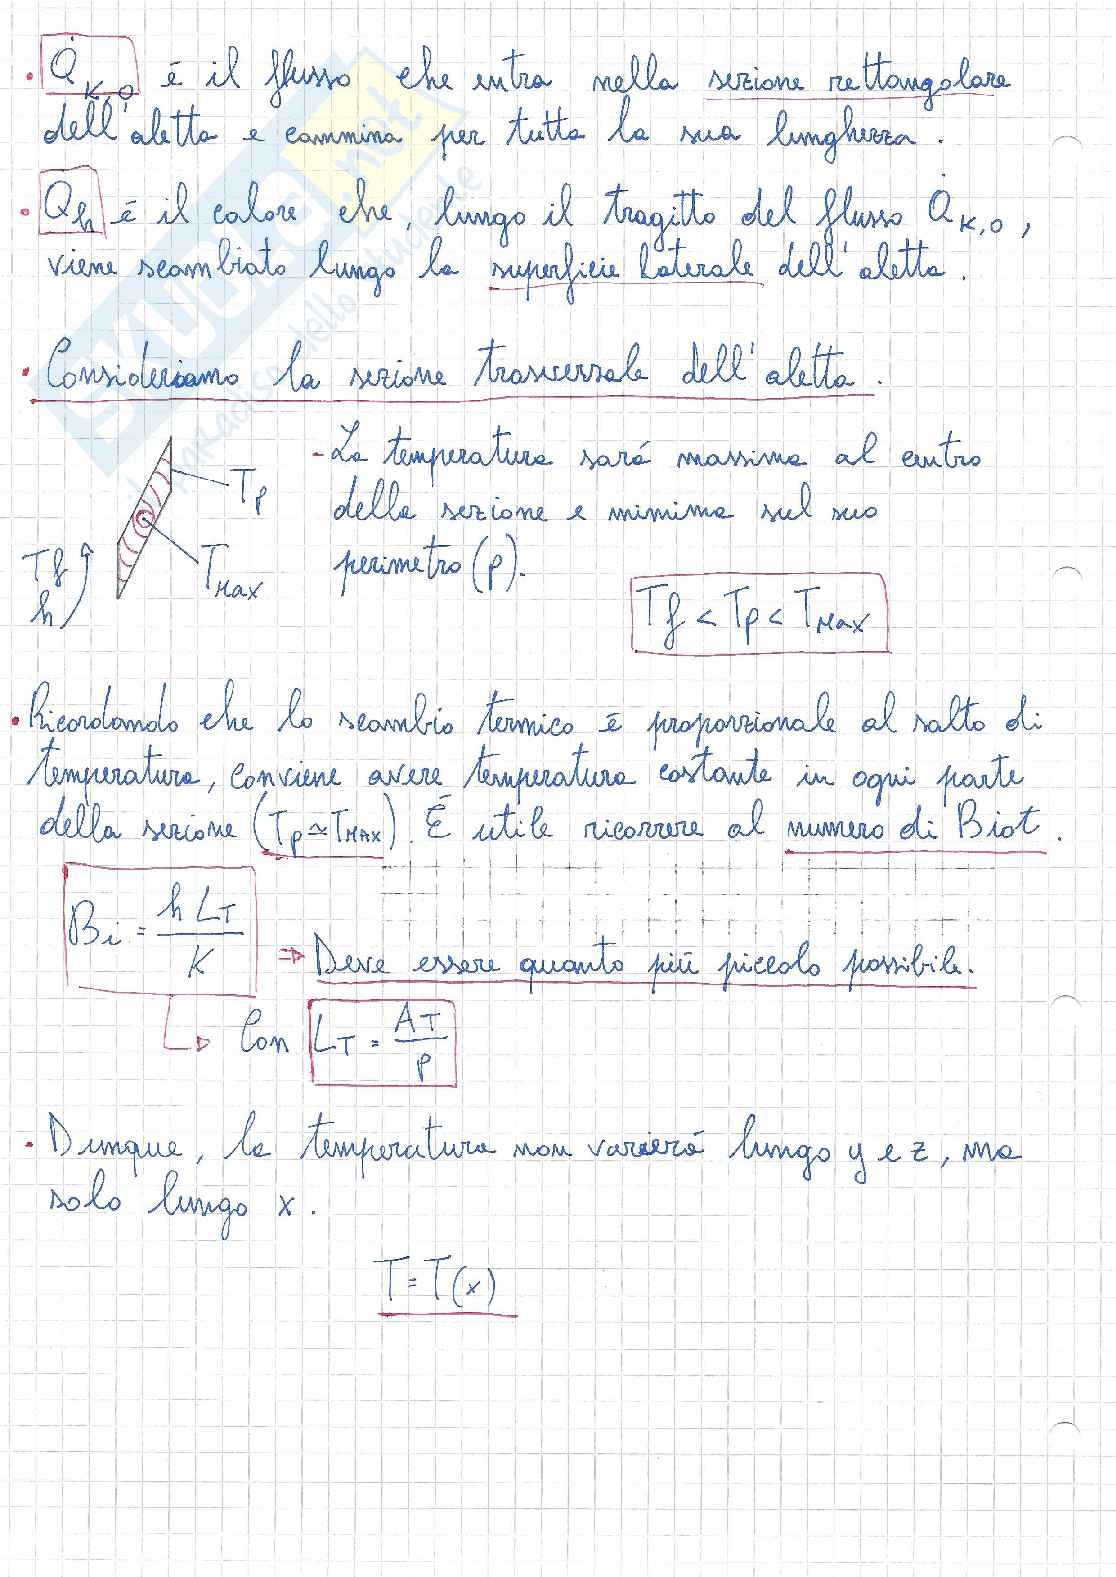 • Q̇K,O é il flusso che entra nella sezione rettangolare
dell'aletta e cammina per tutta la sua lunghezza.
• Qh é il calore che, lungo il tragitto del flusso Q̇K,O,
viene scambiato lungo la superficie laterale dell'aletta.
• Consideriamo la sezione trasversale dell'aletta.
- La temperatura sará massima al centro
della sezione e minima sul suo
perimetro (p).
Tp
TMax
Tf
h
Tf < Tp < TMax
• Ricordando che lo scambio termico é proporzionale al salto di
temperatura, conviene avere temperatura costante in ogni parte
della sezione (Tp ≃ TMAX). É utile ricorrere al numero di Biot.
Bi = h LT / K ⇒ Deve essere quanto piú piccolo possibile.
Con LT = AT / p
• Dunque, la temperatura non varierá lungo y e z, ma
solo lungo x.
T = T(x)
SKUOLA.net